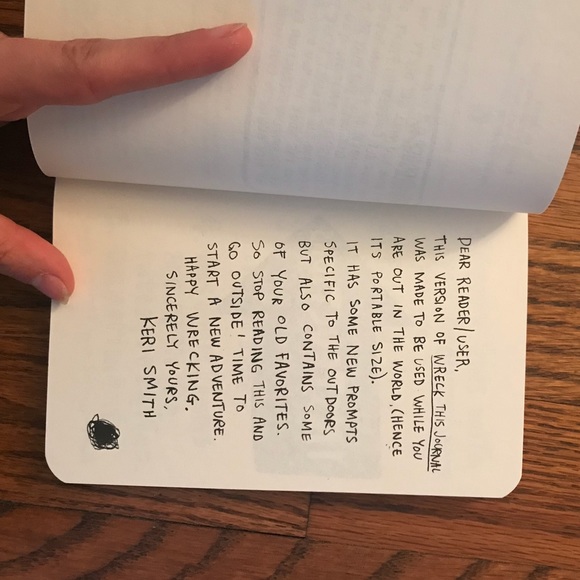 DEAR READER/USER,
THIS VERSION OF WRECK THIS JOURNAL
WAS MADE TO BE USED WHILE YOU
ARE OUT IN THE WORLD, (HENCE
ITS PORTABLE SIZE).
IT HAS SOME NEW PROMPTS
SPECIFIC TO THE OUTDOORS
BUT ALSO CONTAINS SOME
OF YOUR OLD FAVORITES.
SO STOP READING THIS AND
GO OUTSIDE! TIME TO
START A NEW ADVENTURE.
HAPPY WRECKING.
SINCERELY YOURS,
KERI SMITH